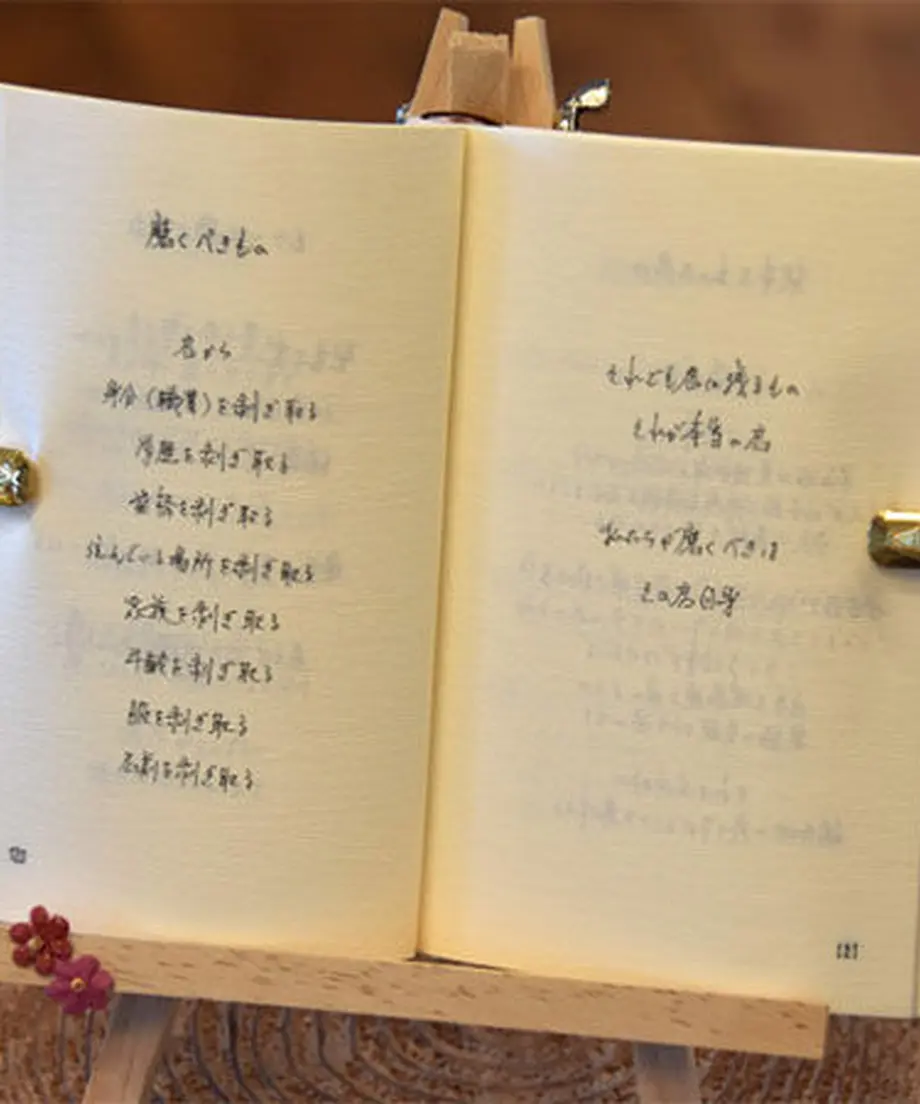 磨くべきもの
君から
身分(職業)を剥ぎ取る
学歴を剥ぎ取る
を剥ぎ取る
住んでいる場所を剥ぎ取る
家族を剥ぎ取る
年齢を剥ぎ取る
服を剥ぎ取る
を剥ぎ取る
それでも君に残るもの
それが本当の君
私たちが磨くべきは
その君自身